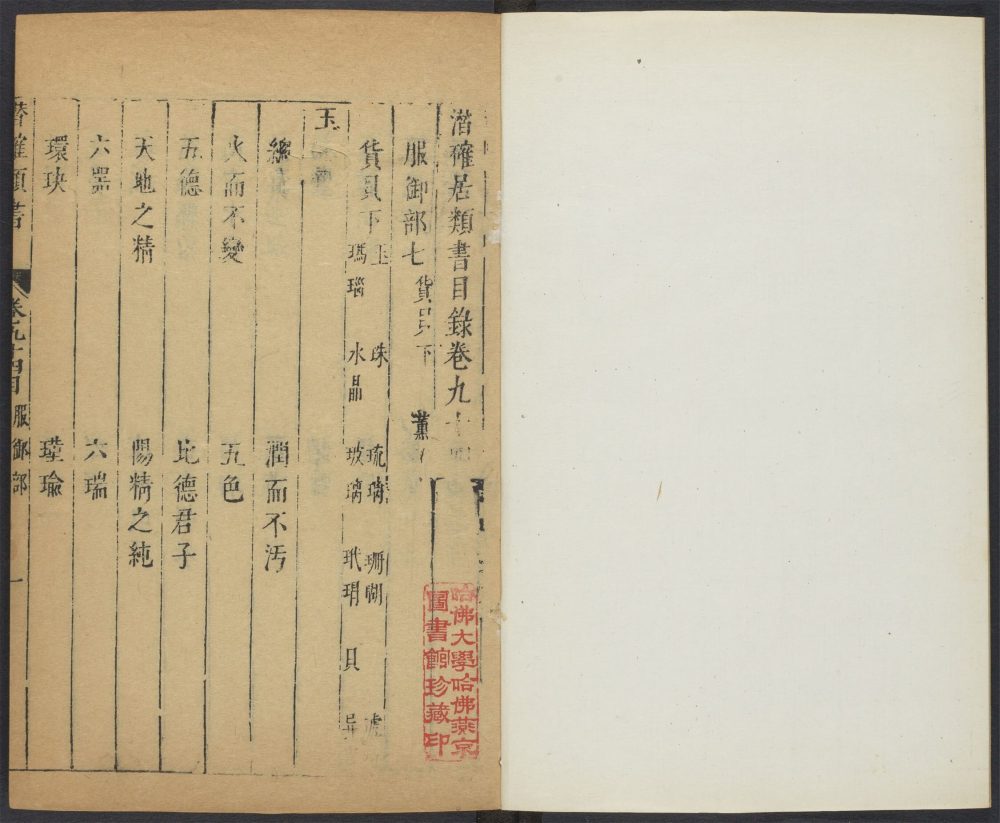 潛確居類書目錄卷九十
服御部七 貨貝下 薰
貨貝下 玉 珠 琉璃 珊瑚 琥
瑪瑙 水晶 玻璃 玳瑁 貝 异
玉
潤而不污
火而不變 五色
五德 比德君子
天地之精 陽精之純
六器 六瑞
環玦 瑾瑜
潛確類書 卷九十四目 服御部 一
哈佛大學哈佛燕京
圖書館珍藏印